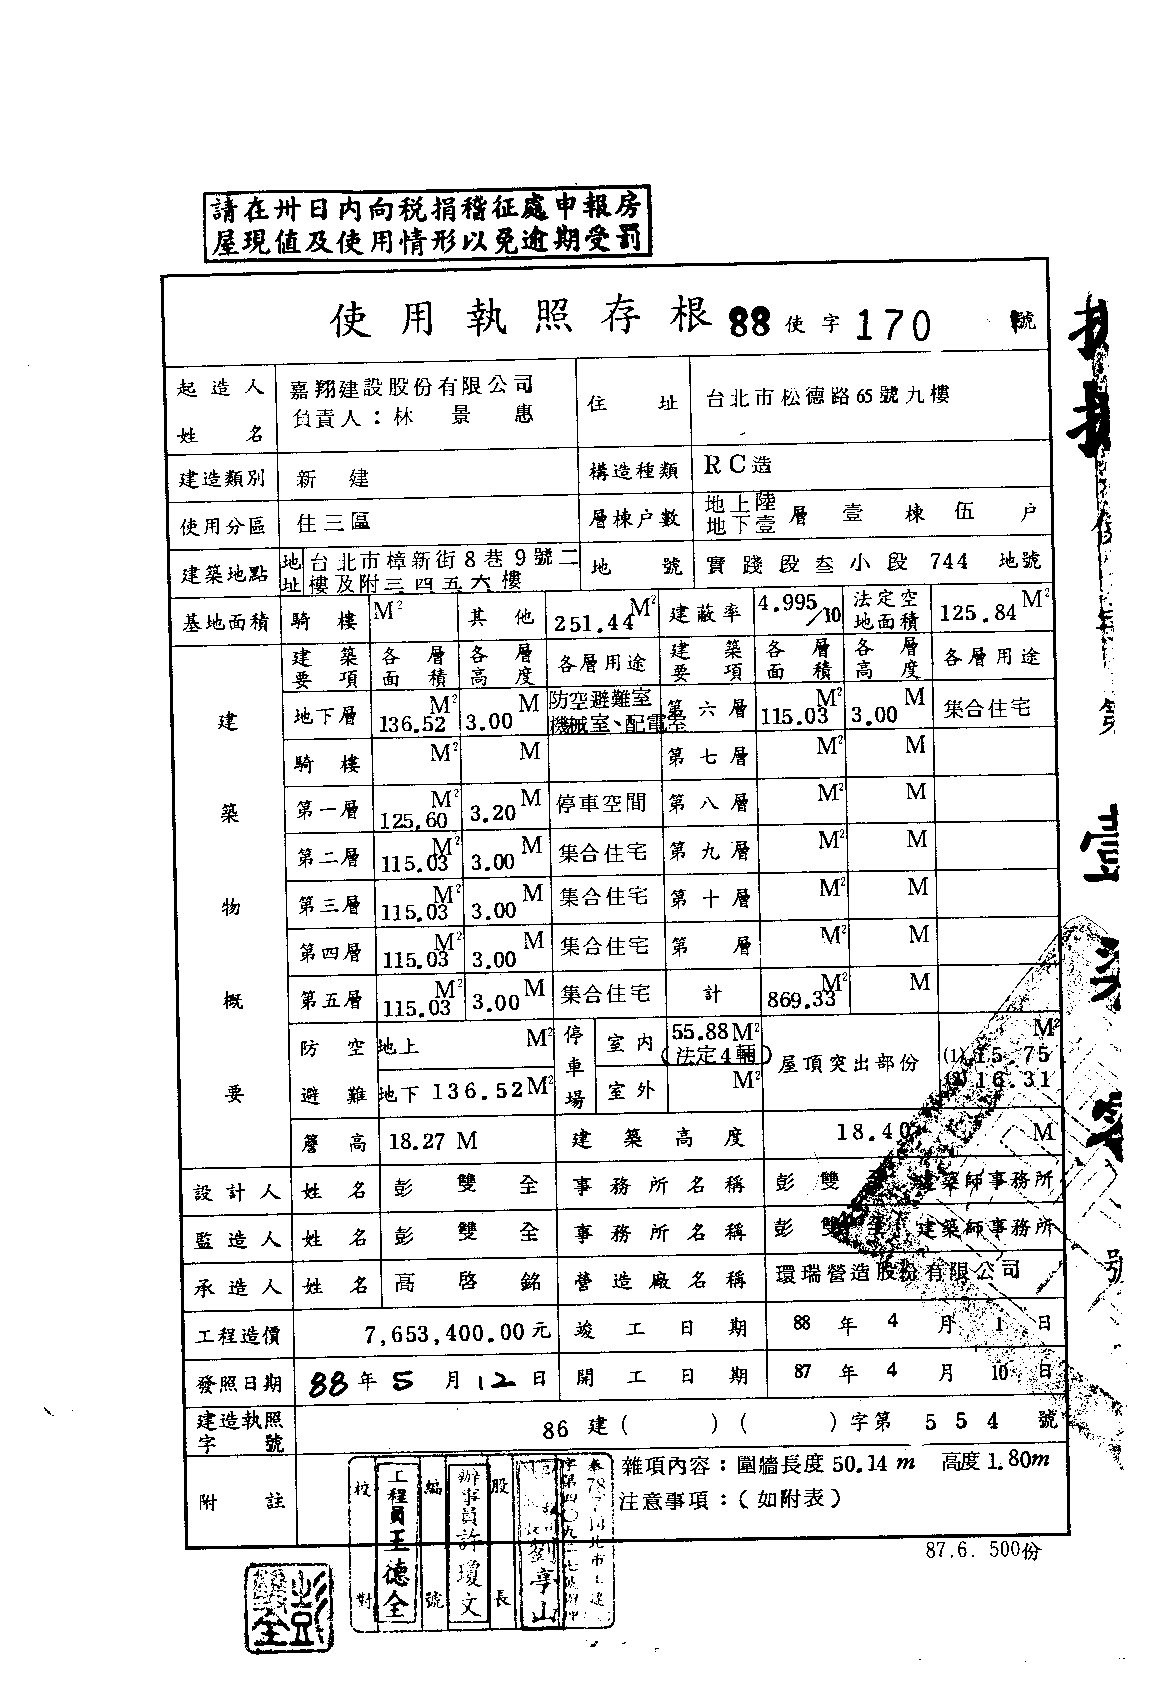 請在卅日內向税捐稽征處申報房
屋現值及使用情形以免逾期受罰
使用執照存根 88 使字 170 號
起造人姓名 嘉翔建設股份有限公司 負責人：林景惠 住址 台北市松德路65號九樓
建造類別 新建 構造種類 RC造
使用分區 住三區 層棟户數 地上陸 地下壹 層 壹棟 伍户
建築地點 地址 台北市樟新街8巷9號二樓及附三四五六樓 地號 實踐段叁小段 744 地號
基地面積 騎樓 M² 其他 251.44 M² 建蔽率 4.995/10 法定空地面積 125.84 M²
建築物概要
建築要項 各層面積 各層高度 各層用途 建築要項 各層面積 各層高度 各層用途
地下層 136.52 M² 3.00 M 防空避難室機械室、配電室 第六層 115.03 M² 3.00 M 集合住宅
騎樓 M² M 第七層 M² M
第一層 125.60 M² 3.20 M 停車空間 第八層 M² M
第二層 115.03 M² 3.00 M 集合住宅 第九層 M² M
第三層 115.03 M² 3.00 M 集合住宅 第十層 M² M
第四層 115.03 M² 3.00 M 集合住宅 第 層 M² M
第五層 115.03 M² 3.00 M 集合住宅 計 869.33 M² M
防空避難 地上 M² 停車場 室內 55.88 M² (法定4輛) 屋頂突出部份 (1) 15.75 M²
地下 136.52 M² 室外 M² (2) 16.31
簷高 18.27 M 建築高度 18.40 M
設計人 姓名 彭雙全 事務所名稱 彭雙 建築師事務所
監造人 姓名 彭雙全 事務所名稱 彭雙全建築師事務所
承造人 姓名 高啓銘 營造廠名稱 環瑞營造股份有限公司
工程造價 7,653,400.00元 竣工日期 88年4月1日
發照日期 88年5月12日 開工日期 87年4月10日
建造執照字號 86建( )( )字第554號
附註 雜項內容：圍牆長度50.14m 高度1.80m
注意事項：(如附表)
校對 工程員王德全
編號 辦事員許瓊文
股長 劉享山
87.6. 500份
彭雙全
第
壹
號